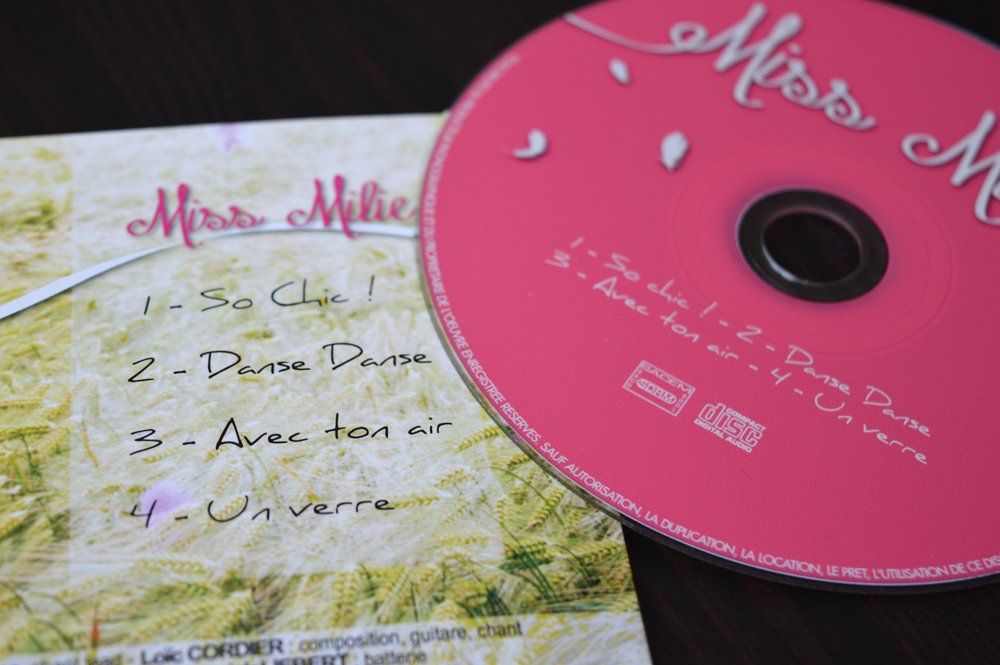 Miss Milie
1 - So Chic !
2 - Danse Danse
3 - Avec ton air
4 - Un verre
Loïc CORDIER : composition, guitare, chant
: batterie
Miss
1 - So chic ! - 2 - Danse Danse
3 - Avec ton air - 4 - Un verre
SACEM
SDRM
COMPACT
disc
DIGITAL AUDIO
DE L'OEUVRE ENREGISTREE RESERVES. SAUF AUTORISATION, LA DUPLICATION, LA LOCATION, LE PRET, L'UTILISATION DE CE